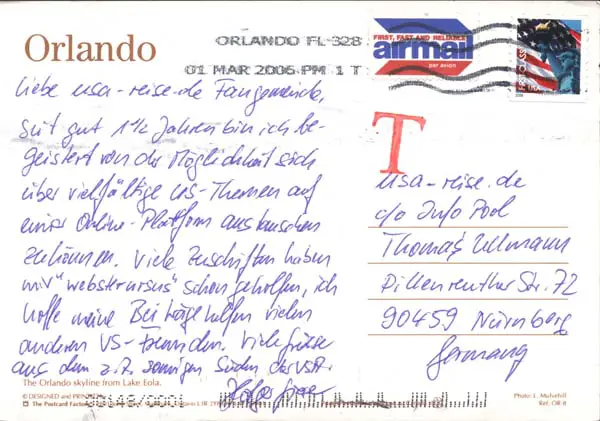 Orlando
ORLANDO FL 328
01 MAR 2006 PM 1 T
FIRST, FAST AND RELIABLE
airmail
par avion
FIRST-CLASS
Liebe usa-reise.de Fangemeinde,
seit gut 1 1/2 Jahren bin ich be-
geistert von der Möglichkeit sich
über vielfältige US-Themen auf
einer Online-Plattform austauschen
zu können. Viele Zuschriften haben
mir "websterursus" schon geholfen, ich
hoffe meine Beiträge helfen vielen
anderen US-Freunden. Viele Grüsse
aus dem z.Z. sonnigen Süden der USA.
T
usa-reise.de
c/o Info Pool
Thomas Ullmann
Pillenreuther Str. 72
90459 Nürnberg
Germany
The Orlando skyline from Lake Eola.
© DESIGNED and
The Postcard Factory
Photo: L. Mulvehill
Ref. OR 8